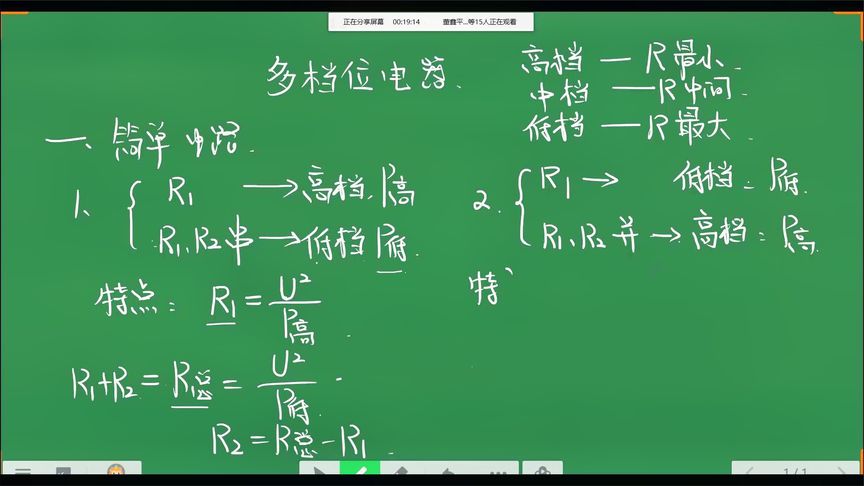 正在分享屏幕 00:19:14 董鑫平...等15人正在观看
多档位电路.
高档 — R最小.
中档 — R中间.
低档 — R最大.
一、简单电路.
1、{ R₁ → 高档. P高
R₁、R₂串 → 低档 P低
特点: R₁ = U²/P高.
R₁+R₂ = R总 = U²/P低.
R₂ = R总 - R₁.
2. { R₁ → 低档: P低.
R₁、R₂并 → 高档: P高.
特
1/1